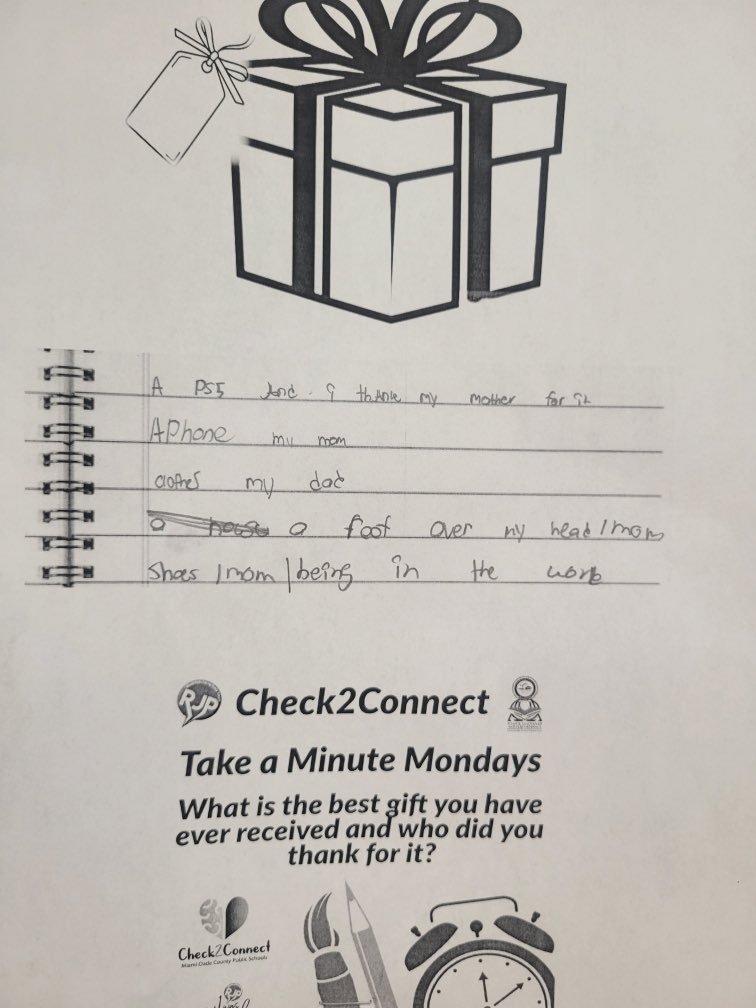 A PS5 And I thank my mother for it
A Phone my mom
clothes my dad
a house a foof over my head / mom
Shoes / mom | being in the worb
RJP
Check2Connect
Take a Minute Mondays
What is the best gift you have
ever received and who did you
thank for it?
Check2Connect
Miami-Dade County Public Schools
RJP